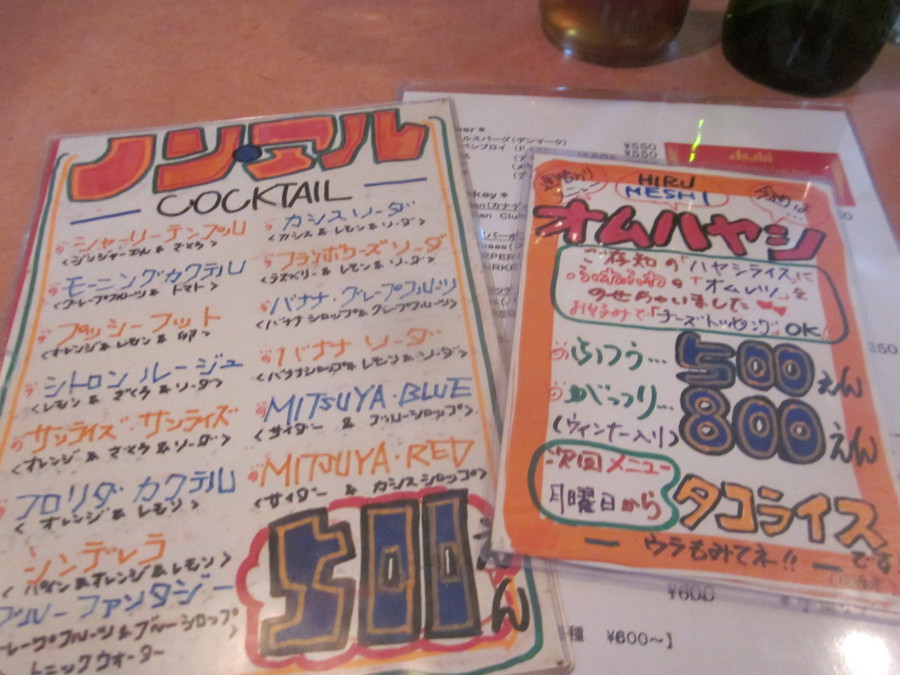 ノン・アル
COCKTAIL
シャーリーテンプル
<ジンジャーエル & ざくろ>
モーニングカクテル
<グレープフルーツ & トマト>
プッシーフット
<オレンジ & レモン & 卵>
シトロンルージュ
<レモン & ざくろ & ソーダ>
サンライズ・サンライズ
<オレンジ & ざくろ & ソーダ>
フロリダカクテル
<オレンジ & レモン>
シンデレラ
<パイン & オレンジ & レモン>
ブルーファンタジー
レープフルーツ & ブルーシロップ
トニックウォーター
カシスソーダ
<カシス & レモン & ソーダ>
フランボワーズソーダ
<ラズベリー & レモン & ソーダ>
バナナ・グレープフルーツ
<バナナシロップ & グレプフルーツ>
バナナソーダ
<バナナシロップ & レモン & ソーダ>
MITSUYA・BLUE
<サイダー & ブルーシロップ>
MITSUYA・RED
<サイダー & カシスシロップ>
500えん
ルスバーグ(デンマーク)
¥550
¥550
Asahi
HIRU
MESHI
オムハヤシ
ご存知の「ハヤシライス」に
ふわふわの「オムレツ」を
のせちゃいました
お好みで「チーズトッピング」OK!
ふつう… 500えん
がっつり… 800えん
(ウィンナー入り)
次回メニュー
月曜日から
タコライス
です
ウラもみてネ!!
¥600
種 ¥600～】